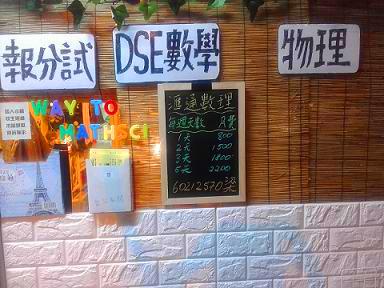 報分試
DSE數學
物理
WAY TO
MATHSCI
滙通數理
每週天數 月費
1天 800
2天 1500
3天 1800
5天 2200
60212570梁